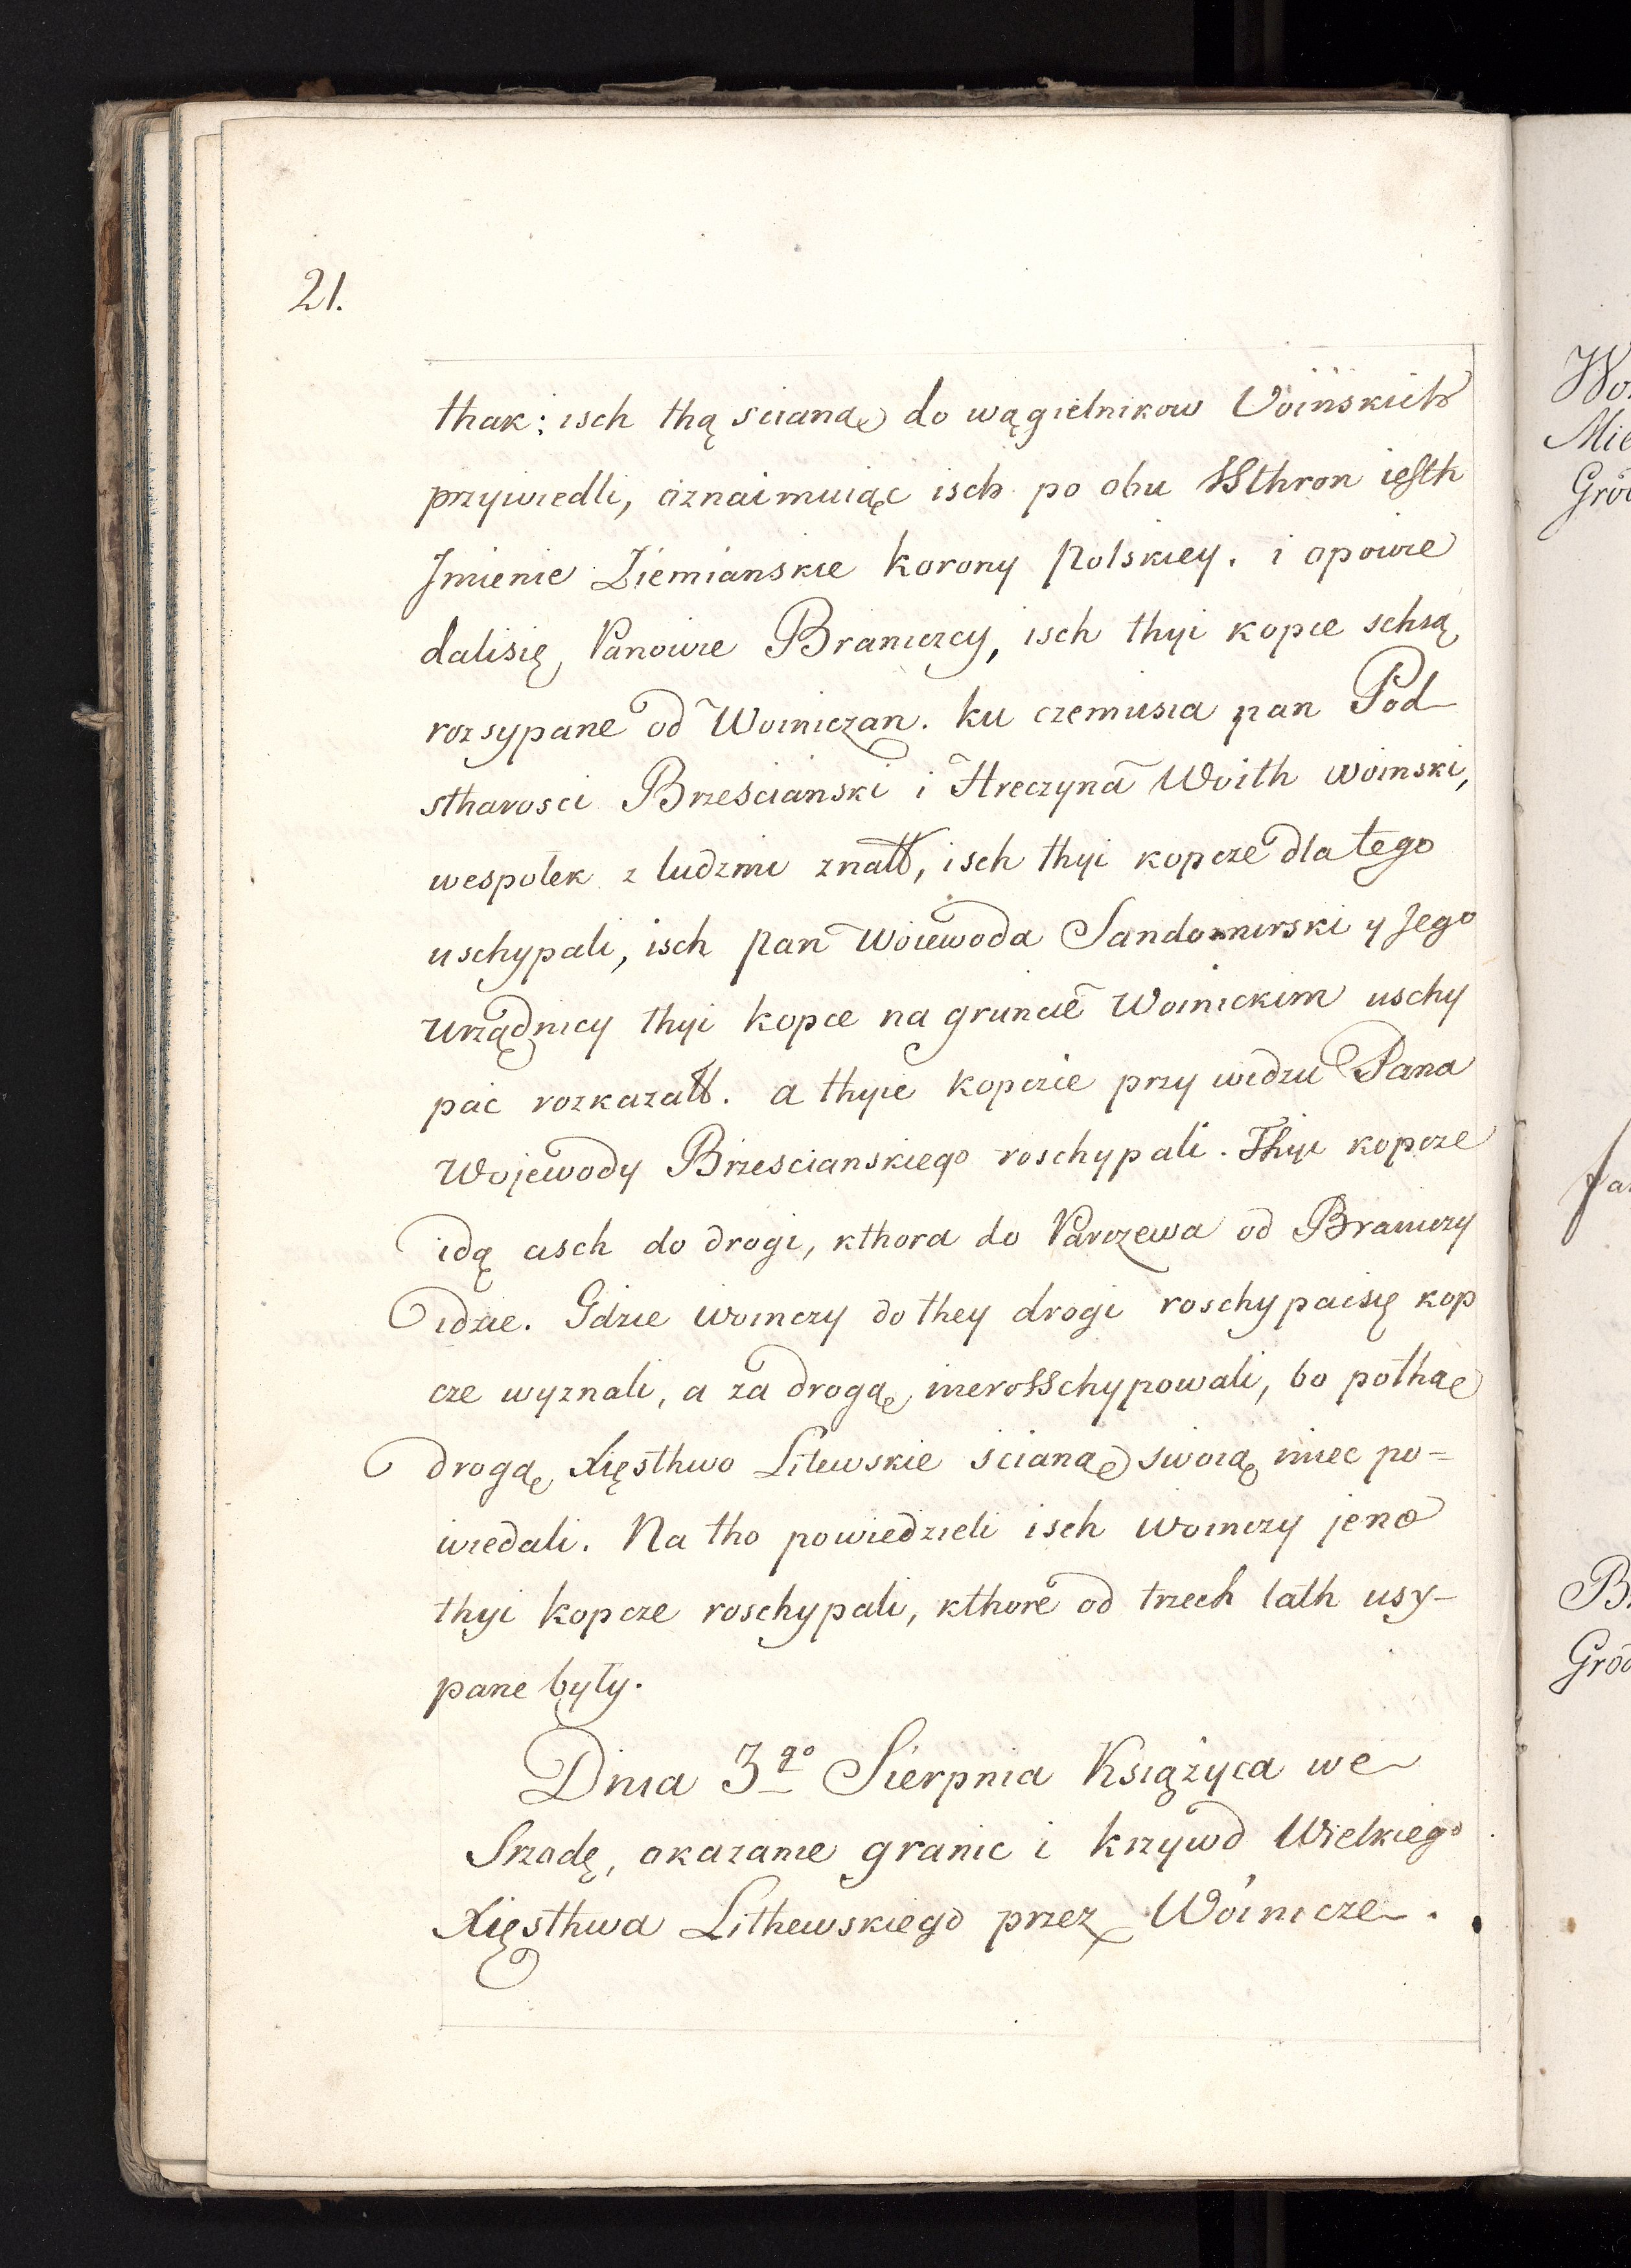 21.
thak; isch thą scianąę do wągielnikow Voinskich
przywiedli, oznaimuiąc isch po obu SSthron iesth
Jmienie Ziemianskie Korony Polskiey. i opowie
dalisię Panowie Braniczcy, isch thyi kopce schsą
rozsypane od Woiniczan. ku czemusia pan Pod
stharosci Brześcianski i Hreczyna Woith woinski,
wespołek z ludzmi znałł, isch thyi kopcze dla tego
uschypali, isch pan Woiewoda Sandomirski y Jego
Urządnicy thyi kopce na gruncie Woinickim uschy
pać rozkazałł. a thyie kopczie przy widzu Pana
Wojewody Brzescianskiego roschypali. Thyi kopcze
idą asch do drogi, kthora do Parczewa od Braniczy
idzie. Gdzie woinczy do they drogi roschypaisię kop
cze wyznali, a za drogą, nierosschypowali, bo pothąę
drogą, Xięsthwo Litewskie ścianąę swoią, miec po=
wiedali. Na tho powiedzieli isch woinczy jeno
thyi kopcze roschypali, kthore od trzech lath usy-
pane były.
Dnia 3go Sierpnia Książyca we
Srzodę, okazanie granic i krzywd Wielkiego
Xięsthwa Lithewskiego przez Woinicze.
Wo
Mie
Gró
fa
B
Gró